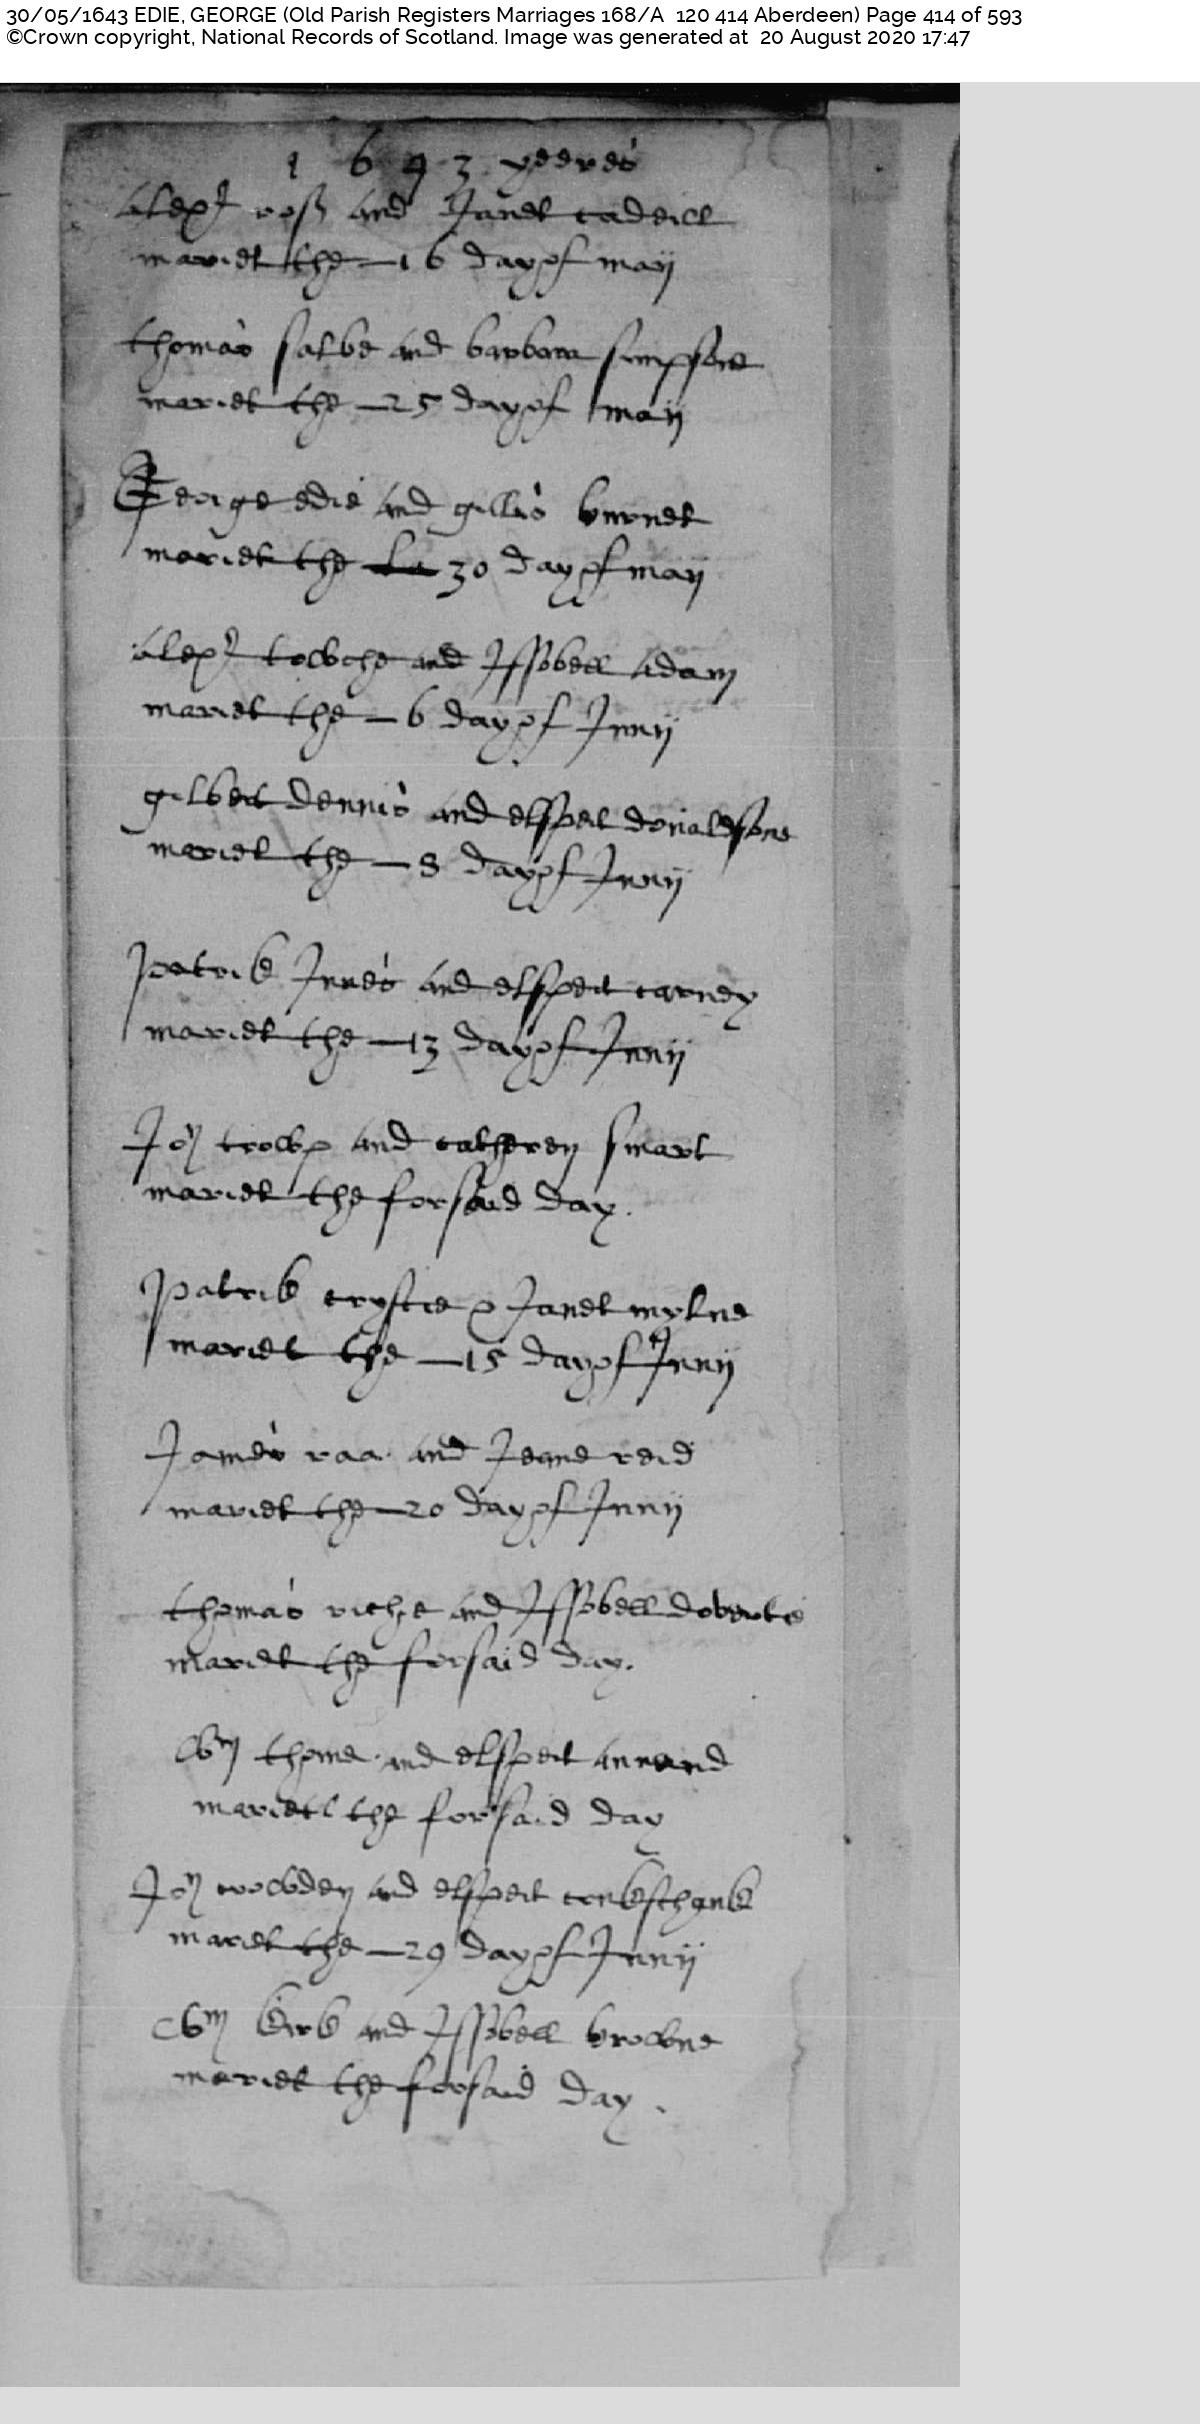 30/05/1643 EDIE, GEORGE (Old Parish Registers Marriages 168/A 120 414 Aberdeen) Page 414 of 593
©Crown copyright, National Records of Scotland. Image was generated at 20 August 2020 17:47
1643 yeeres
Alexr ross and Janet caddell
mariet the — 16 day of maij
thomas and barbara simpsone
mariet the — 25 day of maij
George edie and gilles burnet
mariet the 30 day of maij
Alexr towche and Issobell Adam
mariet the — 6 day of Junij
gilbert dennis and elspeit donaldsone
mariet the — 8 day of Junij
patrik Innes and elspeit carney
mariet the — 13 day of Junij
Jon trowp and catheren smart
mariet the forsaid day.
patrik crystie & Janet mylne
mariet the — 15 day of Junij
James raa and Jeane reid
mariet the — 20 day of Junij
thomas riche and Issobell
mariet the forsaid day.
Wm thome and elspeit annand
mariet the forsaid day
Jon and elspeit crukschank
mariet the — 29 day of Junij
Wm kirk and Issobell browne
mariet the forsaid day.